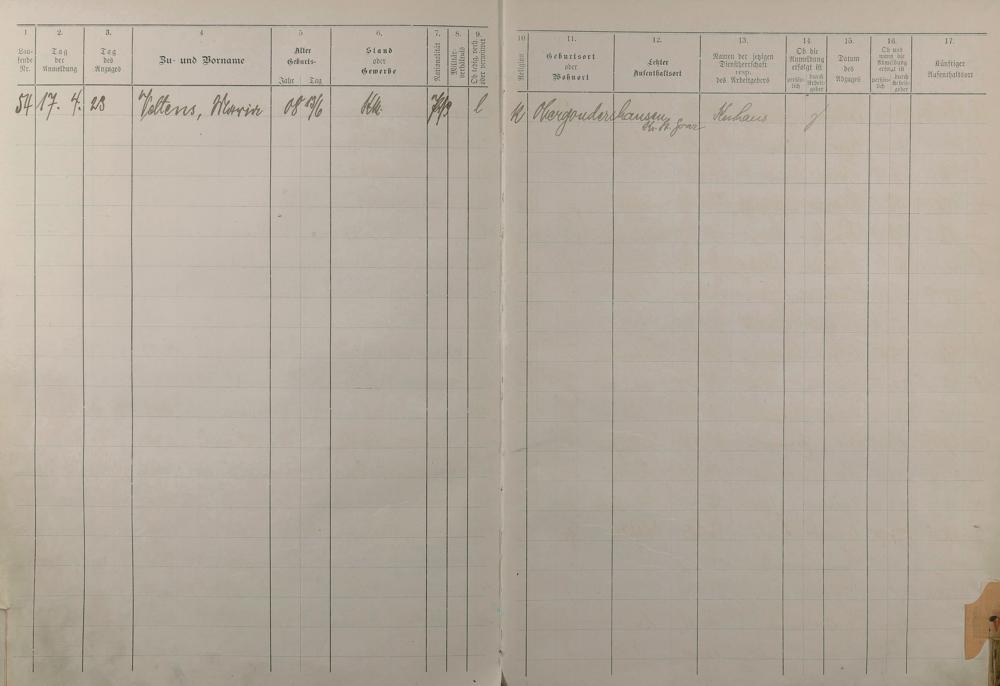 1
Lau-
fende
Nr.
2.
Tag
der
Anmeldung
3.
Tag
des
Anzuges
4
Zu- und Vorname
5
Alter
Geburts-
Jahr Tag
6.
Stand
oder
Gewerbe
7.
Nationalität
8.
Militär-
verhältnis
9.
Ob ledig, verh.
oder verwitwet
10
Religion
11.
Geburtsort
oder
Wohnort
12.
Letzter
Aufenthaltsort
13.
Namen der jetzigen
Dienstherrschaft
resp.
des Arbeitgebers
14
Ob die
Anmeldung
erfolgt ist
persön-
lich
durch
Arbeit-
geber
15.
Datum
des
Abzuges
16.
Ob und
wann die
Abmeldung
erfolgt ist
persön-
lich
durch
Arbeit-
geber
17.
Künftiger
Aufenthaltsort
54 17. 4. 23 Veltens, Maria 08 l K Obergondershausen